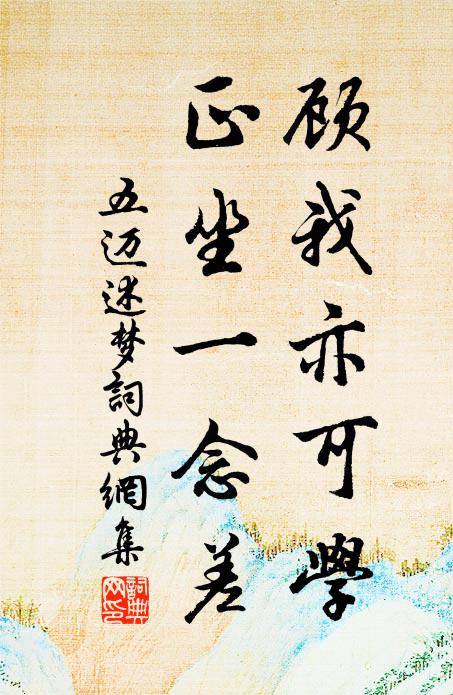 顾我亦可學
正坐一念差
五迈述梦詞典網集
詞典